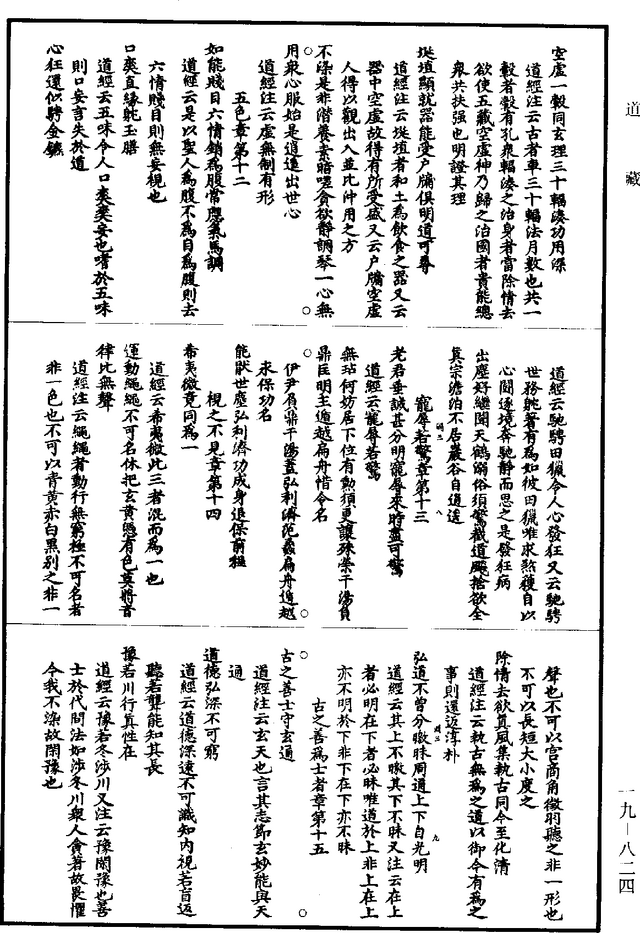 道藏
空虛一轂同玄理三十輻湊功用深
道經注云古者車三十輻法月數也共一
轂者轂有孔眾輻湊之治身者當除情去
欲使五藏空虛神乃歸之治國者貴能總
眾共扶强也明證其理
埏埴顯就器能受戶牖俱明道可尊
道經注云埏埴者和土為飲食之器又云
器中空虛故得有所受盛又云戶牖空虛
人得以觀出入並比沖用之方
不染是非潛養素暗嗟貪欲靜調琴一心無
用眾心服始是逍遙出世心
道經注云虛無制有形
五色章第十二
如能賤目六情銷為腹常應氣馬調
道經云是以聖人為腹不為目為腹則去
六情賤目則無妄視也
口爽直緣躭玉膳
道經云五味令人口爽爽妄也嗜於五味
則口妄言失於道
心狂還似騁金鑣
道經云馳騁田獵令人心發狂又云馳騁
世務躭著有為如彼田獵唯求熬獲自以
心鬪逐境奔馳靜而思之是發狂病
出塵好繼聞天鶴溺俗須驚截道飈捨欲全
真宗澹泊不居巖谷自逍遙
寵辱若驚章第十三
老君垂誡甚分明寵辱來時盡可驚
道經云寵辱若驚
無玷何妨居下位有勳須更讓殊榮干湯負
鼎匡明主遁越扁舟惜令名
伊尹負鼎干湯蓋弘利濟范蠡扁舟遁越
永保功名
能猒世塵弘利濟功成身退保前程
視之不見章第十四
希夷微竟同為一
道經云希夷微此三者混而為一也
運動繩繩不可名休把玄黃慿有色莫將音
律比無聲
道經注云繩繩者動行無窮極不可名者
非一色也不可以青黃赤白黑別之非一
聲也不可以宮商角徵羽聽之非一形也
不可以長短大小度之
除情去欲真風集執古同今至化清
道經注云執古無為之道以御今有為之
事則還返淳朴
弘道不曾分皦昧周通上下自光明
道經云其上不皦其下不昧又注云在上
者必明在下者必昧唯道於上非上在上
亦不明於下非下在下亦不昧
古之善為士者章第十五
古之善士守玄通
道經注云玄天也言其志節玄妙能與天
通
道德弘深不可窮
道經云道德深遠不可識知內視若盲返
聽若聾能知其長
豫若川行真性在
道經云豫若冬涉川又注云豫閑豫也善
士於代間法如涉冬川眾人貪著故畏懼
今我不染故閑豫也
一九－八二四